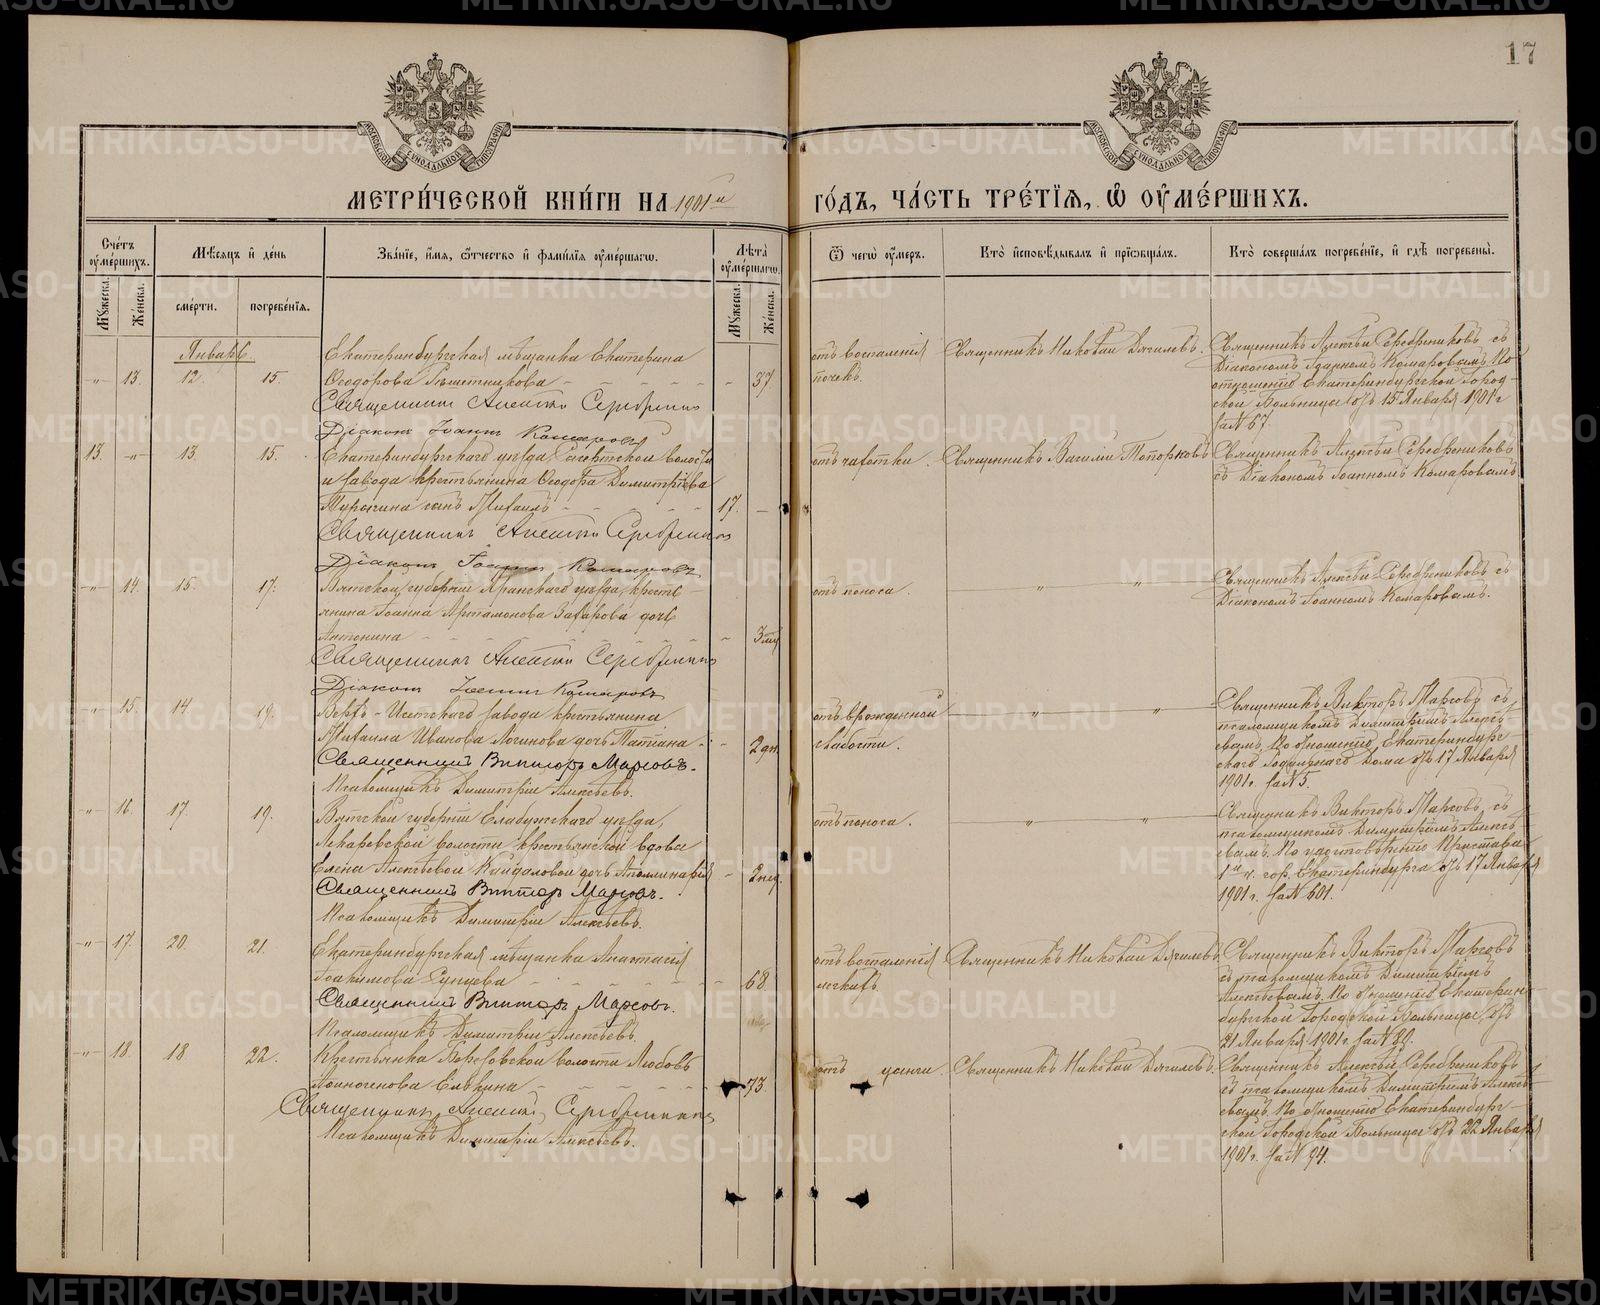 17
МОСКОВСКОЙ СѴНОДАЛЬНОЙ ТИПОГРАФІИ
МОСКОВСКОЙ СѴНОДАЛЬНОЙ ТИПОГРАФІИ
МЕТРИ́ЧЕСКОЙ КНИ́ГИ НА 1901й
ГО́ДЪ, ЧА́СТЬ ТРЕ́ТІѦ, Ѡ҆ ОУ҆МЕ́РШИХЪ.
Счетъ оумершихъ.
Мужеска.
Женска.
Мѣсяцъ и день
смерти.
погребенія.
Званіе, имя, отчество и фамилія оумершагѡ.
Лѣта оумершагѡ.
Мужеска.
Женска.
Ѿ чегѡ оумеръ.
Кто исповѣдывалъ и пріобщалъ.
Кто совершалъ погребеніе, и гдѣ погребены.
Январь.
-"- 13. 12. 15.
Екатеринбургская мѣщанка Екатерина
Ѳеодорова Рѣшетникова - 37
Священникъ Алексѣй Серебренниковъ
Діаконъ Іоаннъ Комаровъ
отъ воспаленія
почекъ.
Священникъ Николай Дягилевъ.
Священникъ Алексѣй Серебренниковъ съ
Діакономъ Іоанномъ Комаровымъ. По
отношенію Екатеринбургской Город-
ской Больницы отъ 15 Января 1901 г
за № 67.
13. -"- 13 15.
Екатеринбургскаго уѣзда Сысертской волости
и завода крестьянина Ѳеодора Димитріева
сынъ Михаилъ 17. -
Священникъ Алексѣй Серебренниковъ
Діаконъ Іоаннъ Комаровъ
отъ чахотки.
Священникъ Василій Топорковъ
Священникъ Алексѣй Серебренниковъ
съ Діакономъ Іоанномъ Комаровымъ
-"- 14. 15. 17.
Вятской губерніи Яранскаго уѣзда, кресть-
янина Іоанна Артамонова Захарова дочь
Антонина - 3 мѣс
Священникъ Алексѣй Серебренниковъ
Діаконъ Іоаннъ Комаровъ
отъ поноса. " "
Священникъ Алексѣй Серебренниковъ съ
Діакономъ Іоанномъ Комаровымъ.
-"- 15. 14 19.
Верхъ-Исетскаго завода крестьянина
Михаила Иванова Логинова дочь Татіана - 2 дн.
Священникъ Викторъ Марсовъ.
Псаломщикъ Димитрій Алексѣевъ.
отъ врожденной
слабости. " "
Священникъ Викторъ Марсовъ съ
псаломщикомъ Димитріемъ Алексѣ-
евымъ. По отношенію Екатеринбург-
скаго Родильнаго Дома отъ 17 Января
1901 г. за № 5.
-"- 16. 17. 19.
Вятской губерніи Елабужскаго уѣзда,
волости крестьянской вдовы
Елены Алексѣевой Кайдаловой дочь Аполлинарія - 2 нед.
Священникъ Викторъ Марсовъ.
Псаломщикъ Димитрій Алексѣевъ.
отъ поноса. " "
Священникъ Викторъ Марсовъ, съ
псаломщикомъ Димитріемъ Алексѣ-
евымъ. По удостовѣренію Пристава
1й ч. гор. Екатеринбурга отъ 17 Января
1901 г. за № 601.
-"- 17. 20. 21.
Екатеринбургская мѣщанка Анастасія
Іоакимова - 68
Священникъ Викторъ Марсовъ.
Псаломщикъ Димитрій Алексѣевъ.
отъ воспаленія
легкихъ.
Священникъ Николай Дягилевъ
Священникъ Викторъ Марсовъ
съ псаломщикомъ Димитріемъ
Алексѣевымъ. По отношенію Екатерин-
бургской Городской Больницы, отъ
21 Января 1901 г. за № 89.
-"- 18. 18 22.
Крестьянка Березовской волости Любовь
Елькина - 73
Священникъ Алексѣй Серебренниковъ
Псаломщикъ Димитрій Алексѣевъ.
отъ цынги.
Священникъ Николай Дягилевъ.
Священникъ Алексѣй Серебренниковъ
съ псаломщикомъ Димитріемъ Алексѣ-
евымъ. По отношенію Екатеринбург-
ской Городской Больницы отъ 22 Января
1901 г. за № 94.
METRIKI.GASO-URAL.RU